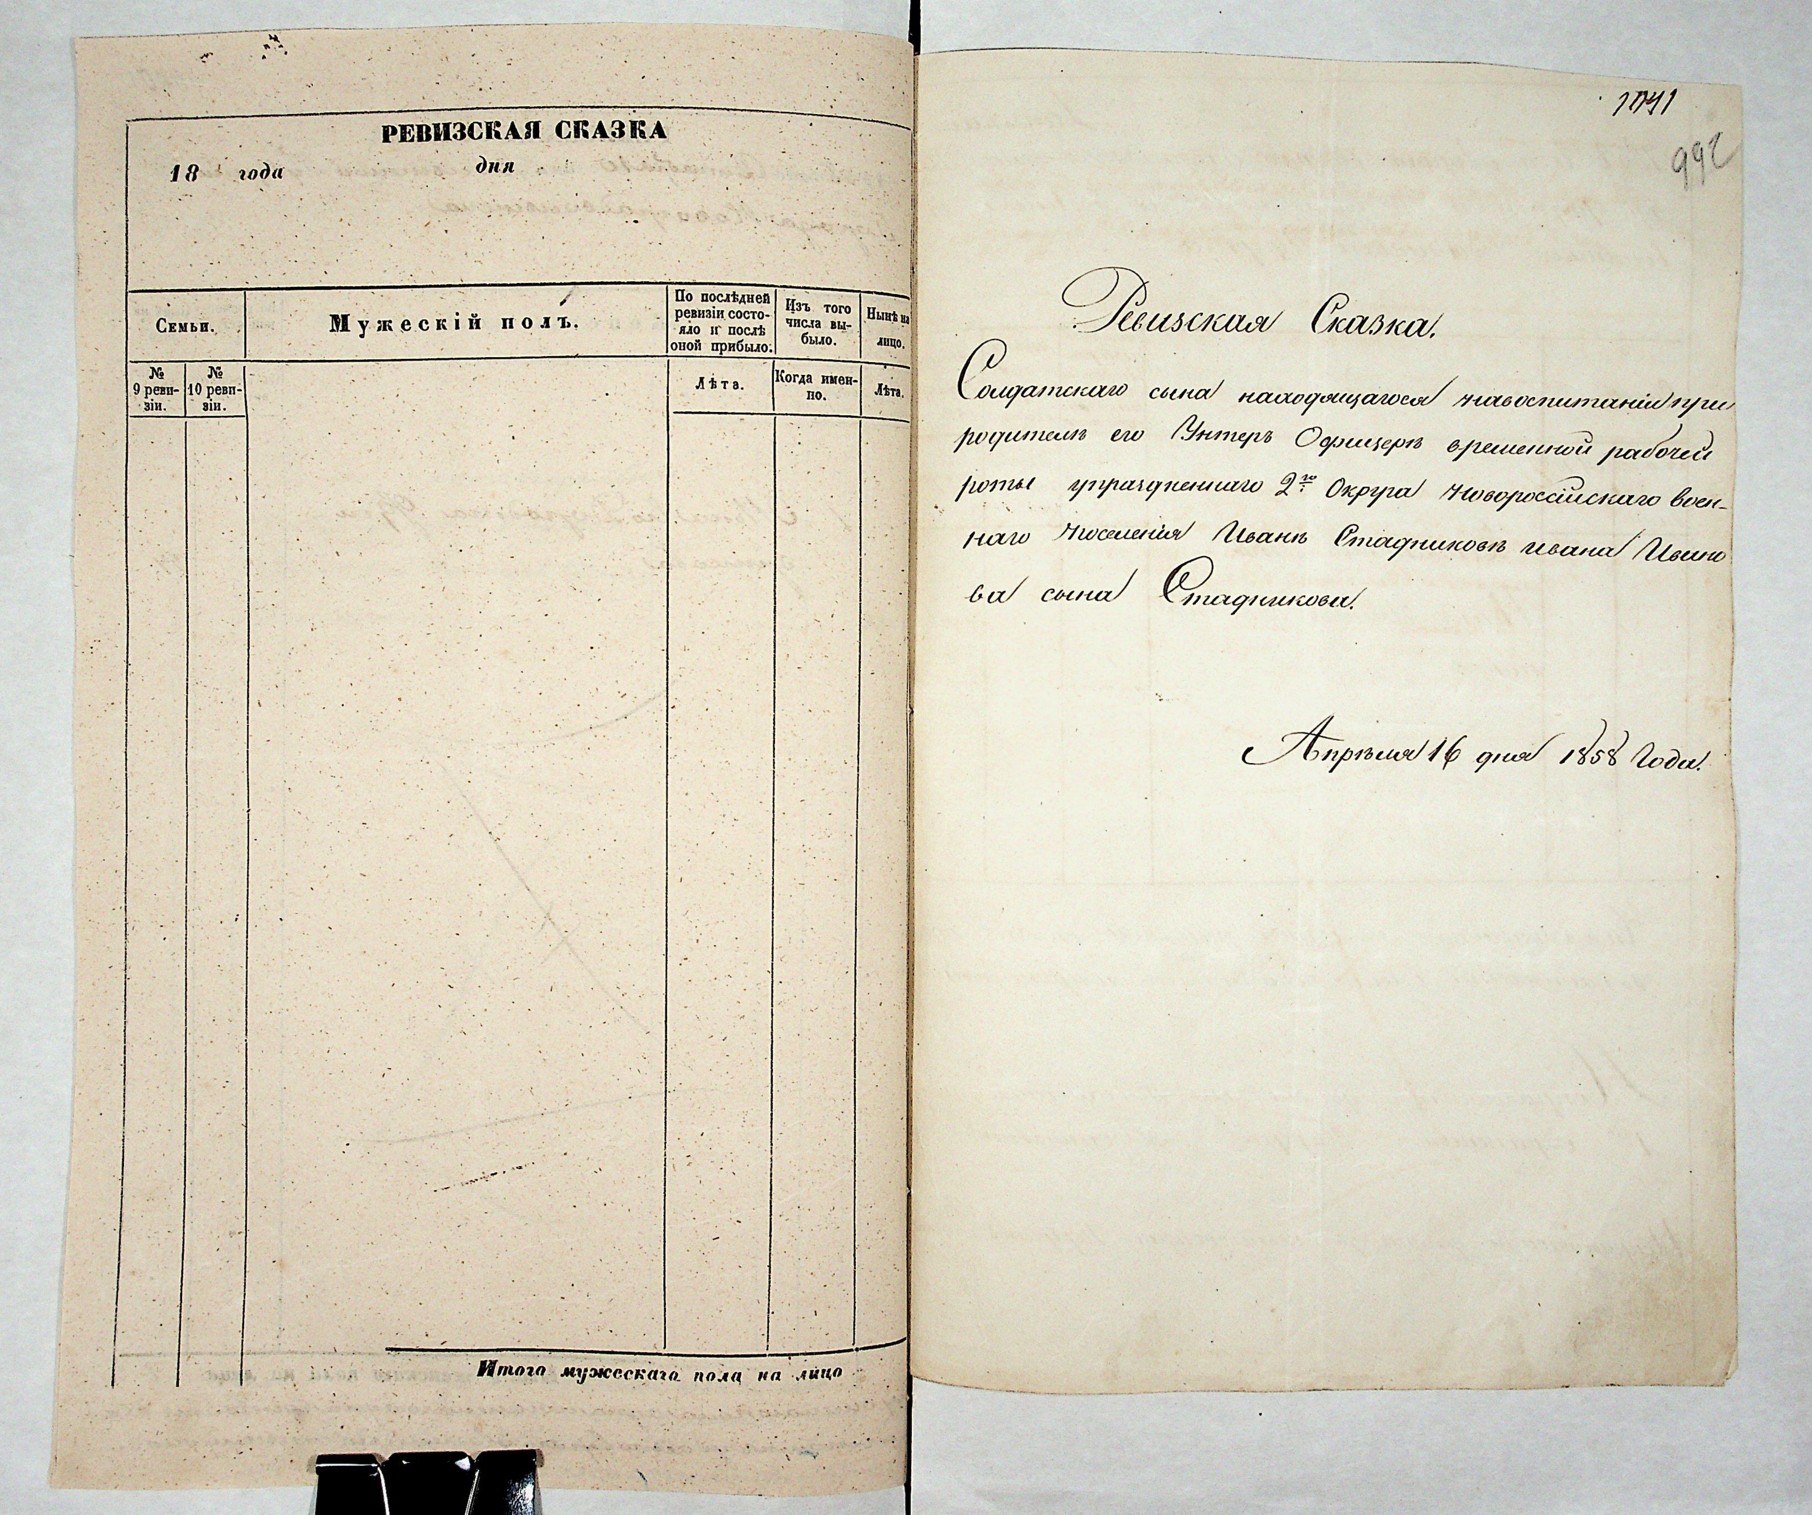 РЕВИЗСКАЯ СКАЗКА
18 года дня
Семьи.
Мужескій полъ.
По послѣдней
ревизіи состо-
яло и послѣ
оной прибыло.
Изъ того
числа вы-
было.
Нынѣ на
лицо.
№
9 реви-
зіи.
№
10 реви-
зіи.
Лѣта.
Когда имен-
но.
Лѣта.
Итого мужескаго пола на лицо
1041
992
Ревизская Сказка.
Солдатскаго сына находящагося навоспитаніи при
родителѣ его Унтеръ Офицерѣ временной рабочей
роты упраздненнаго 2го Округа Новороссійскаго воен-
наго Поселенія Иванѣ Стадниковѣ Ивана Ивано
ва сына Стадникова.
Апрѣля 16 дня 1858 Года.